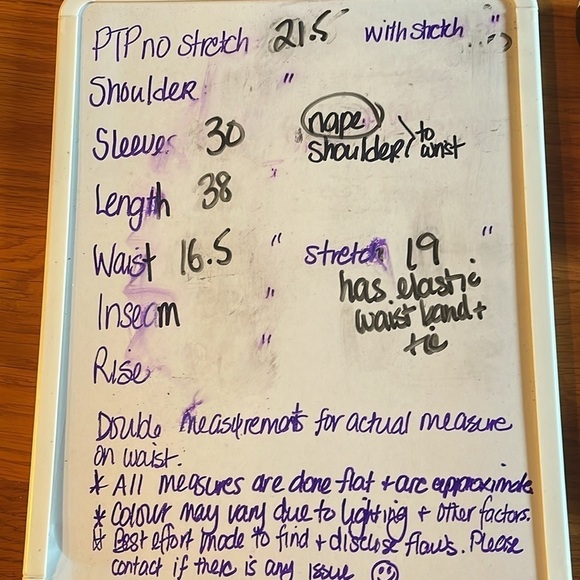 PTP no stretch 21.5" with stretch "
Shoulder "
Sleeves 30 nape
shoulder > to wrist
Length 38
Waist 16.5 " stretch 19 "
has elastic
waist band +
tie
Inseam "
Rise "
Double measurements for actual measure
on waist.
* All measures are done flat + are approximate
* Colour may vary due to lighting + other factors.
* Best effort made to find + disclose flaws. Please
contact if there is any issue ☺